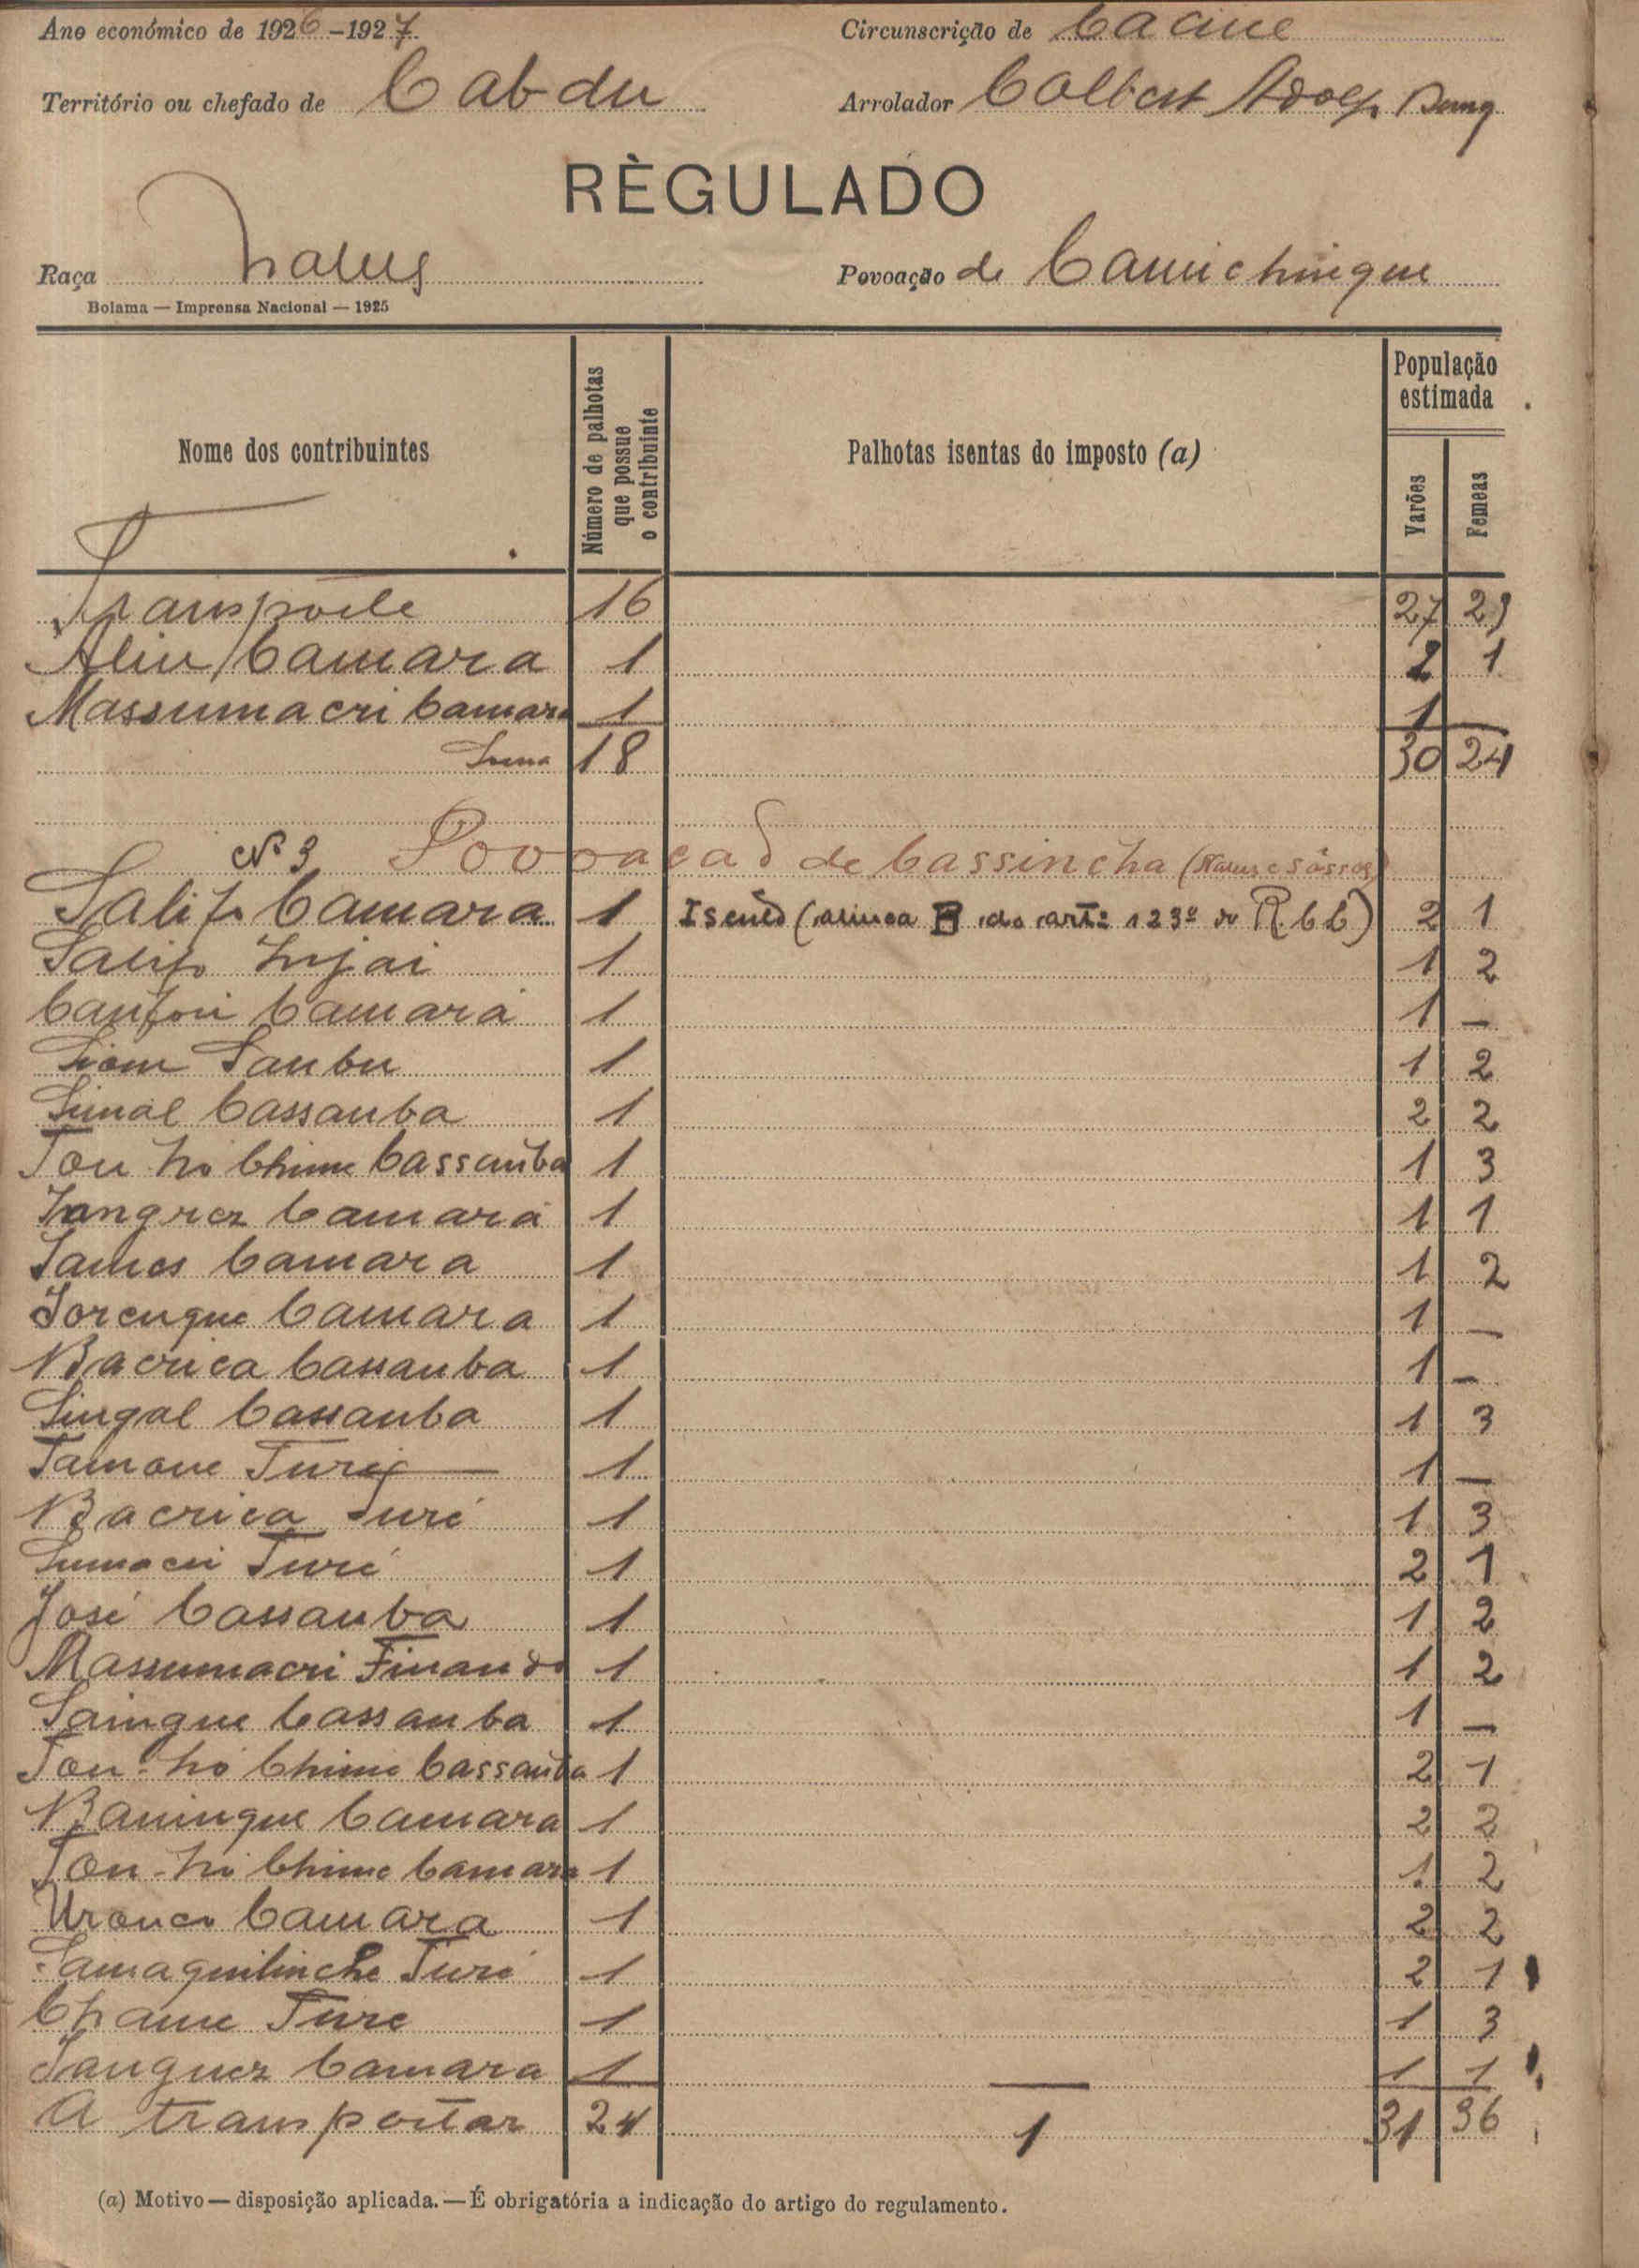 Ano económico de 1926-1927.
Circunscrição de Cacine
Território ou chefado de Cabdu
Arrolador Colbert Adolf
RÈGULADO
Raça Nalus
Povoação de Camichingue
Bolama — Imprensa Nacional — 1925
Nome dos contribuintes
Número de palhotas que possue o contribuinte
Palhotas isentas do imposto (a)
População estimada
Varões
Femeas
Transporte 16 27 23
Aliu Camara 1 2 1
Massumacri Camara 1 1
Soma 18 30 24
Nº 3 Povoação de Cassincha (Nalus e Sôssos)
Salifo Camara 1 Isento (alinea B do artº 123º do R.C.C) 2 1
Salifo Injai 1 1 2
Canfori Camara 1 1 —
Siom Sambu 1 1 2
Simal Cassamba 1 2 2
Tou-hó Chime Cassamba 1 1 3
Tangrez Camará 1 1 1
James Camara 1 1 2
Torengue Camara 1 1 —
Bacrica Cassamba 1 1 —
Singal Cassamba 1 1 3
Tamone Turé 1 1 —
Bacrica Turé 1 1 3
Sumacri Turé 1 2 1
José Cassamba 1 1 2
Massumacri Finando 1 1 2
Saingue Cassamba 1 1 —
Tou-hó Chime Cassamba 1 2 1
Baningue Camara 1 2 2
Tou-hó Chime Camara 1 1 2
Camara 1 2 2
Samaquilinche Turé 1 2 1
Chame Ture 1 1 3
Tanguez Camara 1 — 1 1
A transportar 24 1 31 36
(a) Motivo — disposição aplicada. — É obrigatória a indicação do artigo do regulamento.